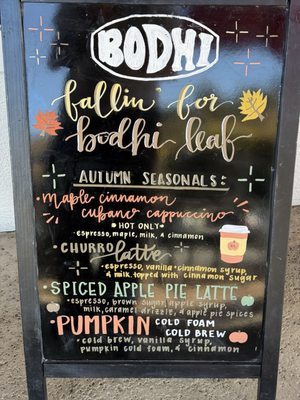 BODHI
fallin' for
bodhi leaf
AUTUMN SEASONALS:
• maple cinnamon
cubano cappuccino
• HOT ONLY •
• espresso, maple, milk, & cinnamon
• CHURRO latte
• espresso, vanilla-cinnamon syrup,
& milk.topped with cinnamon sugar
• SPICED APPLE PIE LATTE
• espresso, brown sugar, apple syrup,
milk, caramel drizzle, & apple pie spices
• PUMPKIN COLD FOAM
COLD BREW
• cold brew, vanilla syrup,
pumpkin cold foam, & cinnamon